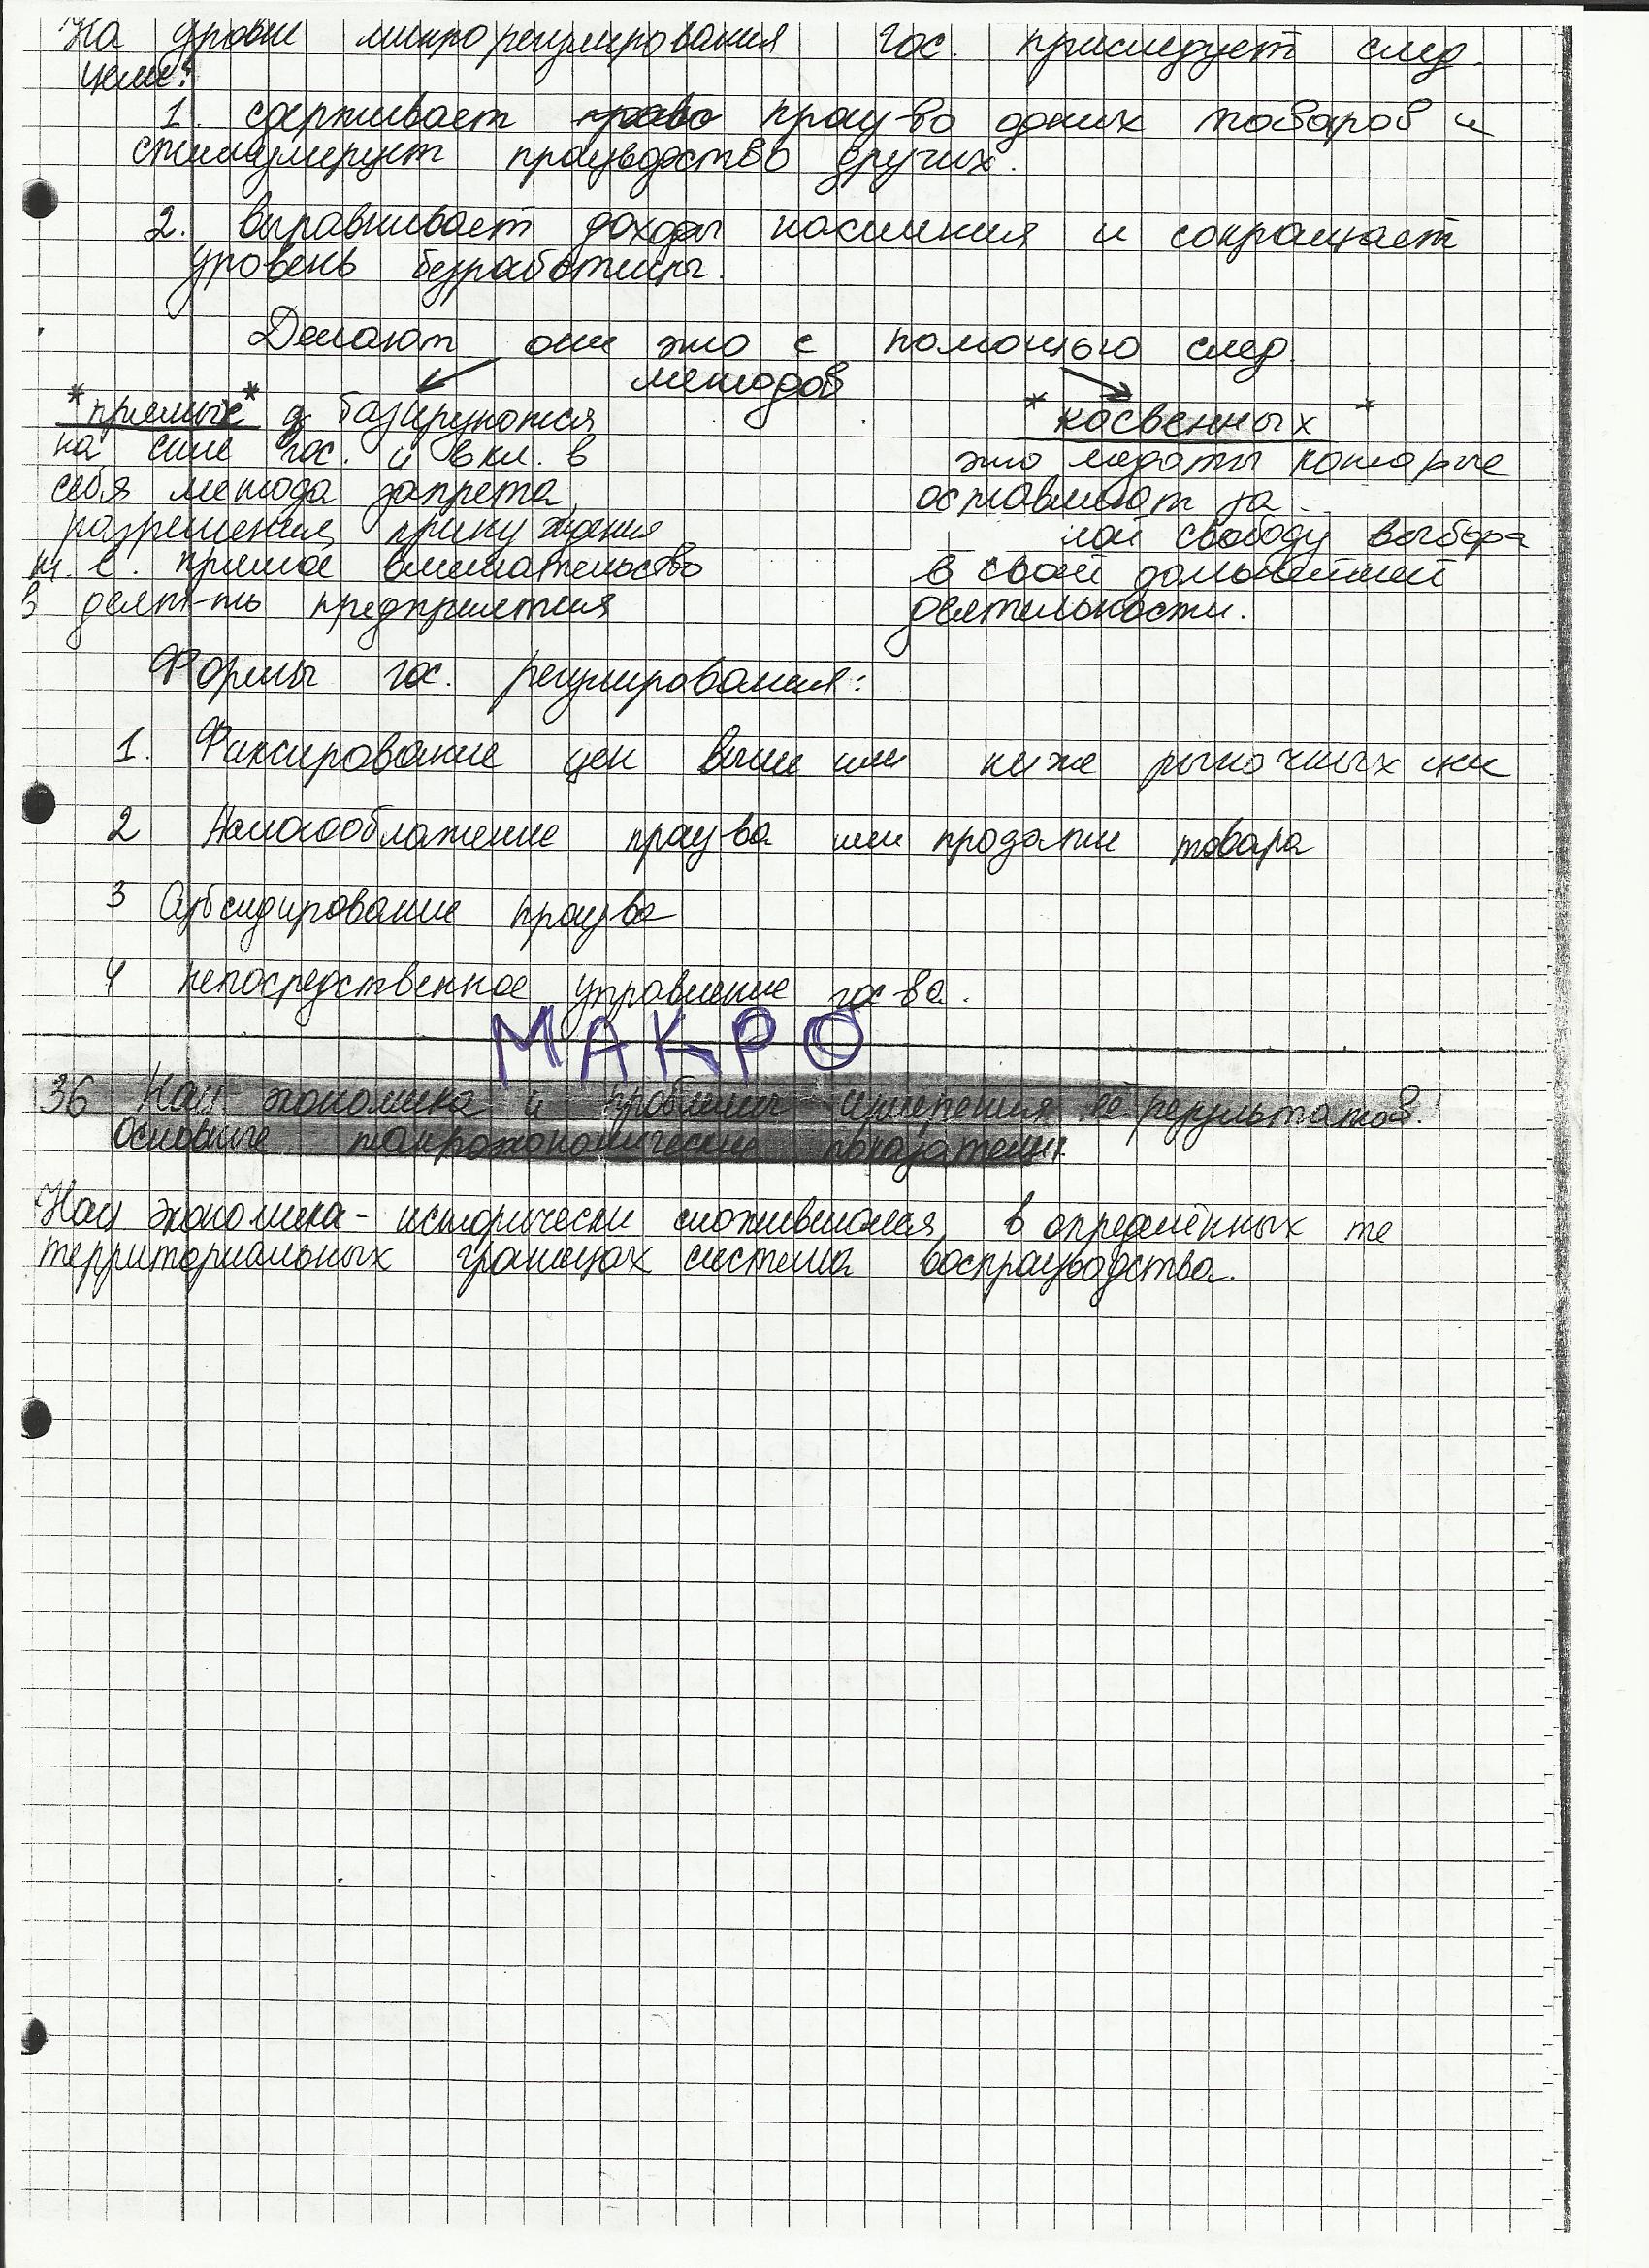 На уровне микрорегулирования гос. приследует след.
цели:
1. сдерживает право произ-во одних товаров и
стимулирует производство других.
2. выравнивает доходы населения и сокращает
уровень безработицы.
Делают они это с помощью след.
методов
*прямых* базируются
на силе гос. и вкл. в
себя метода запрета,
разрешения, принуждения
т. е. прямое вмешательство
в деят-ть предприятия
* косвенных *
это медоты которые
оставляют за
мой свободу выбора
в своей дальнейшей
деятельности.
Формы гос. регулирования:
1. Фиксирование цен выше или ниже рыночных цен
2 Налогообложение произ-ва или продажи товара
3 Субсидирование произ-ва
4 непосредственное управление гос-ва.
МАКРО
36 Нац экономика и проблемы измерения её результатов.
Основные макроэкономические показатели.
Нац экономика - исторически сложившаяся в определённых те
территориальных границах система воспроизводства.